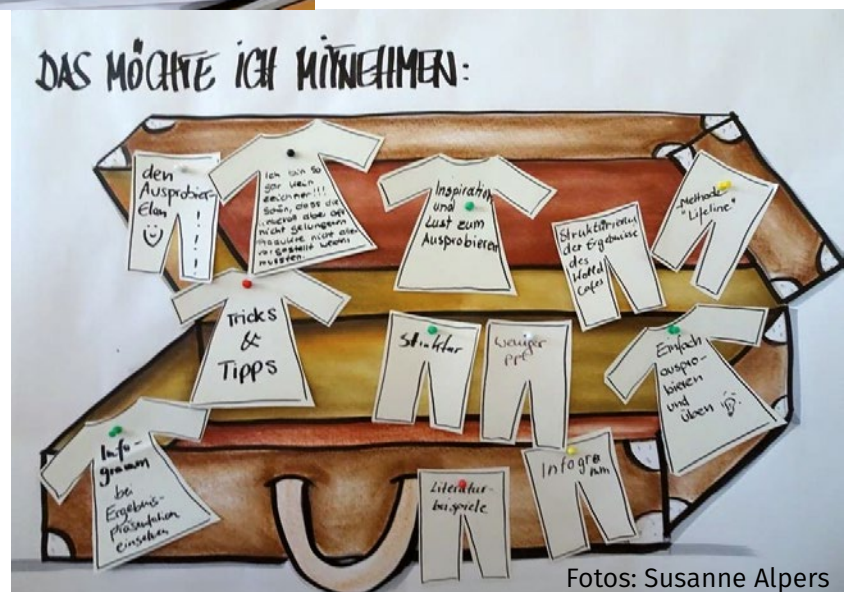 DAS MÖCHTE ICH MITNEHMEN:
den
Ausprobier-
Elan !!!!
Ich bin so
gar kein
zeichner!!!
Schön, dass die
aber oft
nicht gelungenen
Produkte nicht
vorgestellt werden
mussten.
Inspiration
und
Lust zum
Ausprobieren
Strukturierung
der Ergebnisse
des
World
Cafes
Methode
"Lifeline"
Tricks
&
Tipps
Struktur
weniger
PPT
Einfach
auspro-
bieren
und
üben
Info-
gramm
bei
Ergebnis-
präsentation
einsetzen
Literatur-
beispiele
Infogra
mm
Fotos: Susanne Alpers